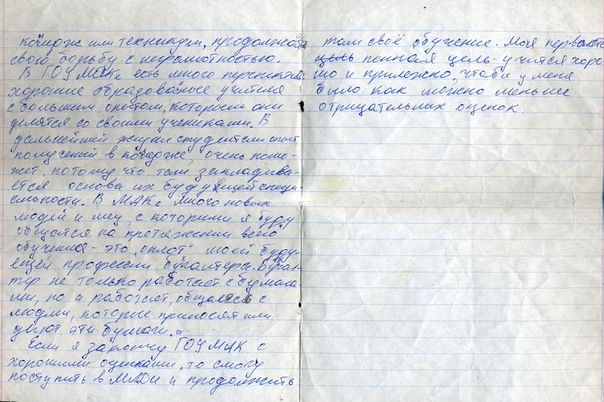 колледж или техникум, продолжать
свою борьбу с неграмотностью.
В ГОУ МАКе есть много перспектив
хорошие образованые учителя
с большим опытом, которым они
делятся со своими учениками. В
дальнейшей жизни студентам опыт
полученный в колледже, очень помо-
жет, потому что там закладыва-
ется основа их будующей специ-
альности. В МАКе много новых
людей и тем, с которыми я буду
общатся на протяжении всего
обучения - это "оплот" моей буду-
ющей профессии бухгалтера. Бухгал-
тер не только работает с бумага-
ми, но и работает, общаеться с
людми, которые приносят или
дают эти бумаги.
Если я закончу ГОУ МАК с
хорошими оценками, то смогу
поступить в МАДИ и продолжить
там своё обучение. Моя первая
цель учится хоро-
шо и прилежно, чтобы у меня
было как можно меньше
отрицательных оценок.